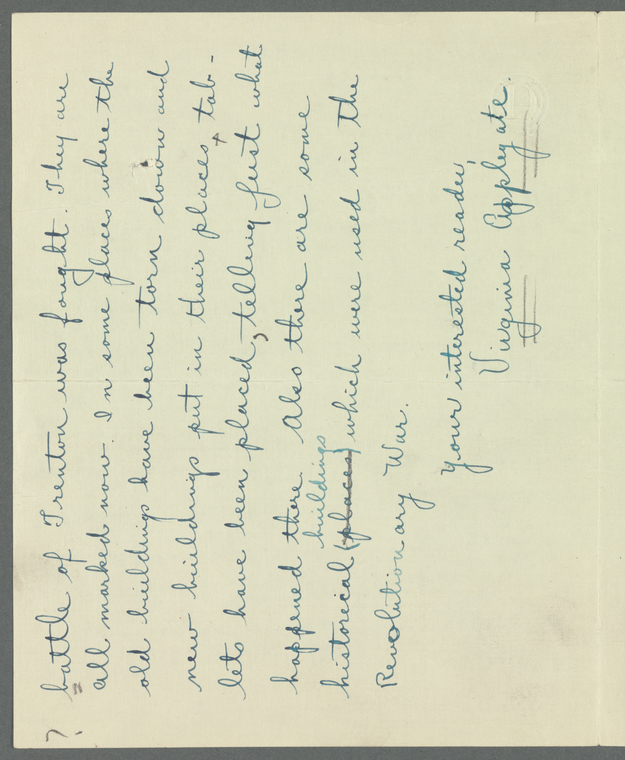 battle of Trenton was fought. They are
all marked now. In some places where the
old buildings have been torn down and
new buildings put in their places tab-
lets have been placed, telling just what
happened there. Also there are some
buildings
historical (places) which were used in the
Revolutionary War.
Your interested reader,
Virginia Applegate.
?